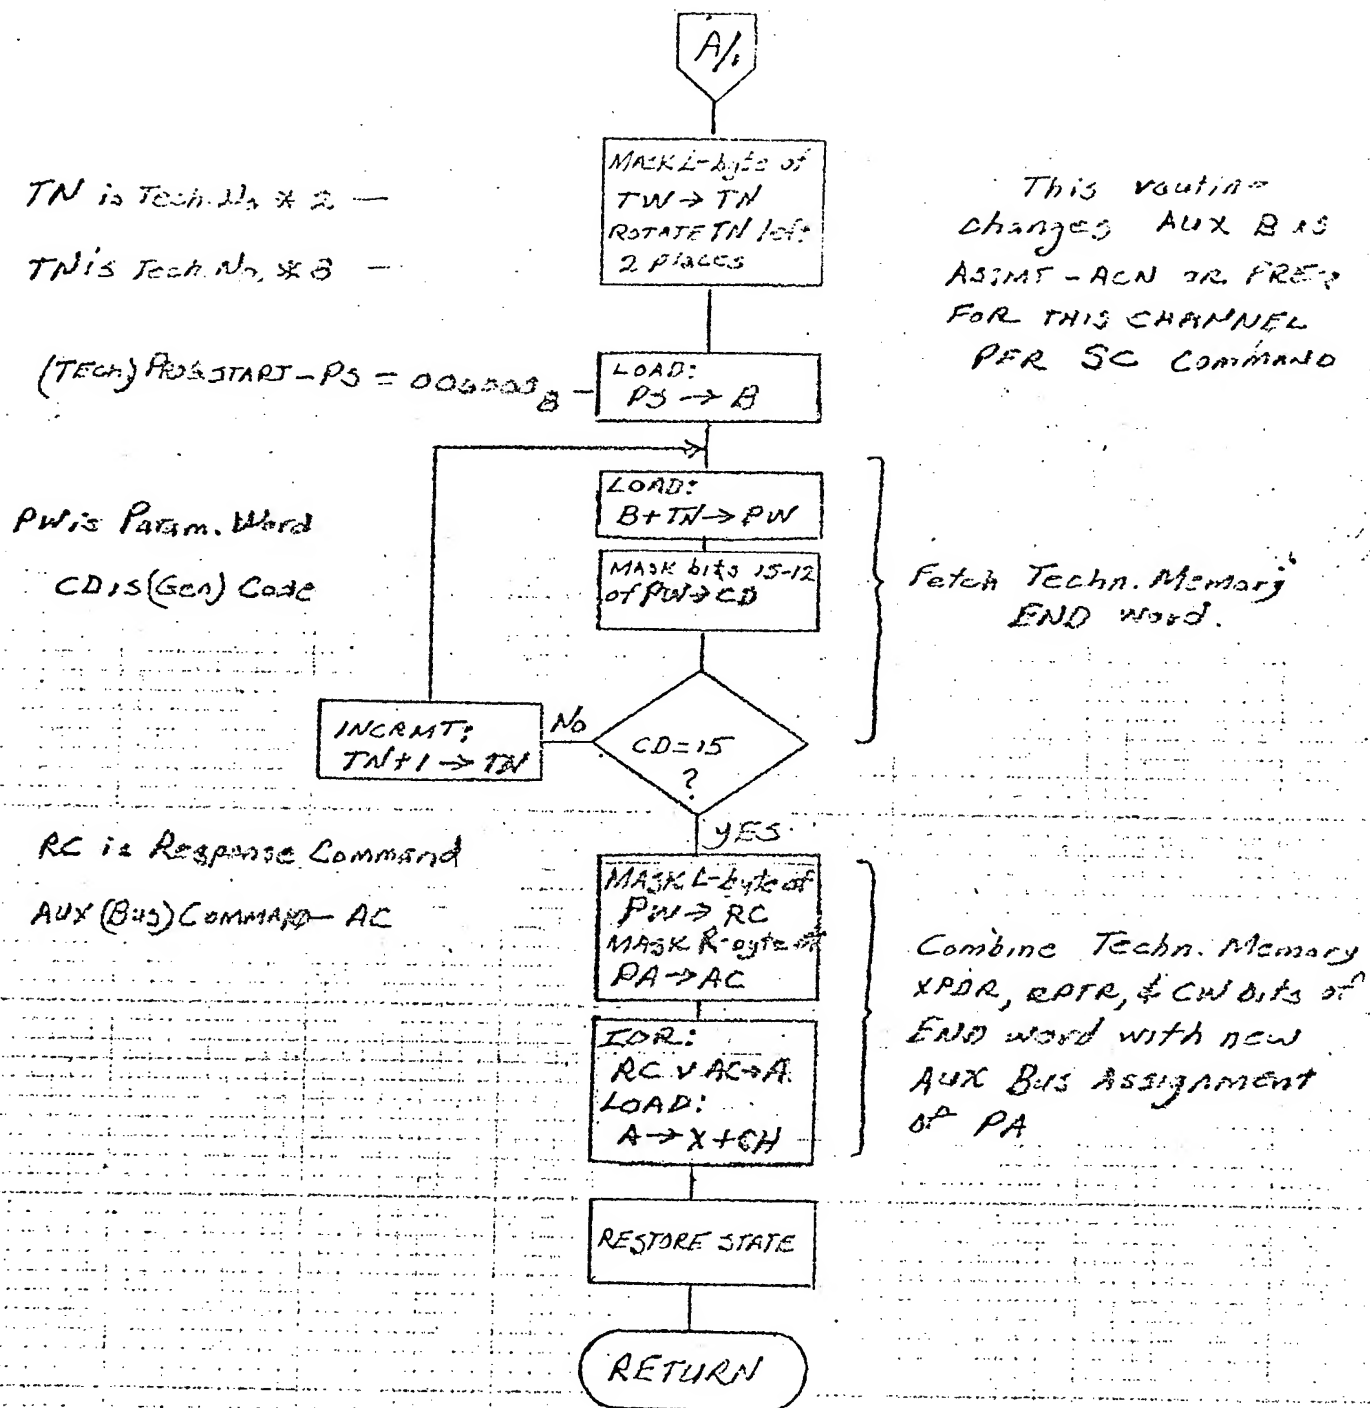 A/1
MASK L-byte of
TW → TN
ROTATE TN left
2 places
TN is Tech. No * 2 —
TN is Tech. No. * 8 —
This routine
changes AUX Bus
ASIMT - ACN OR FREQ
FOR THIS CHANNEL
PER SC COMMAND
(TECH) PROG START - PS =
LOAD:
PS → B
LOAD:
B + TN → PW
MASK bits 15-12
of PW → CD
PW is Param. Word
CD is (Gen) Code
Fetch Techn. Memory
END Word.
INCRMT:
TN + 1 → TN
No
CD = 15
?
YES
RC is Response Command
AUX (Bus) COMMAND - AC
MASK L-byte of
PW → RC
MASK R-byte of
PA → AC
IOR:
RC v AC → A
LOAD:
A → X + CH
Combine Techn. Memory
XPDR, RPTR, & CW bits of
END word with new
AUX Bus Assignment
of PA
RESTORE STATE
RETURN